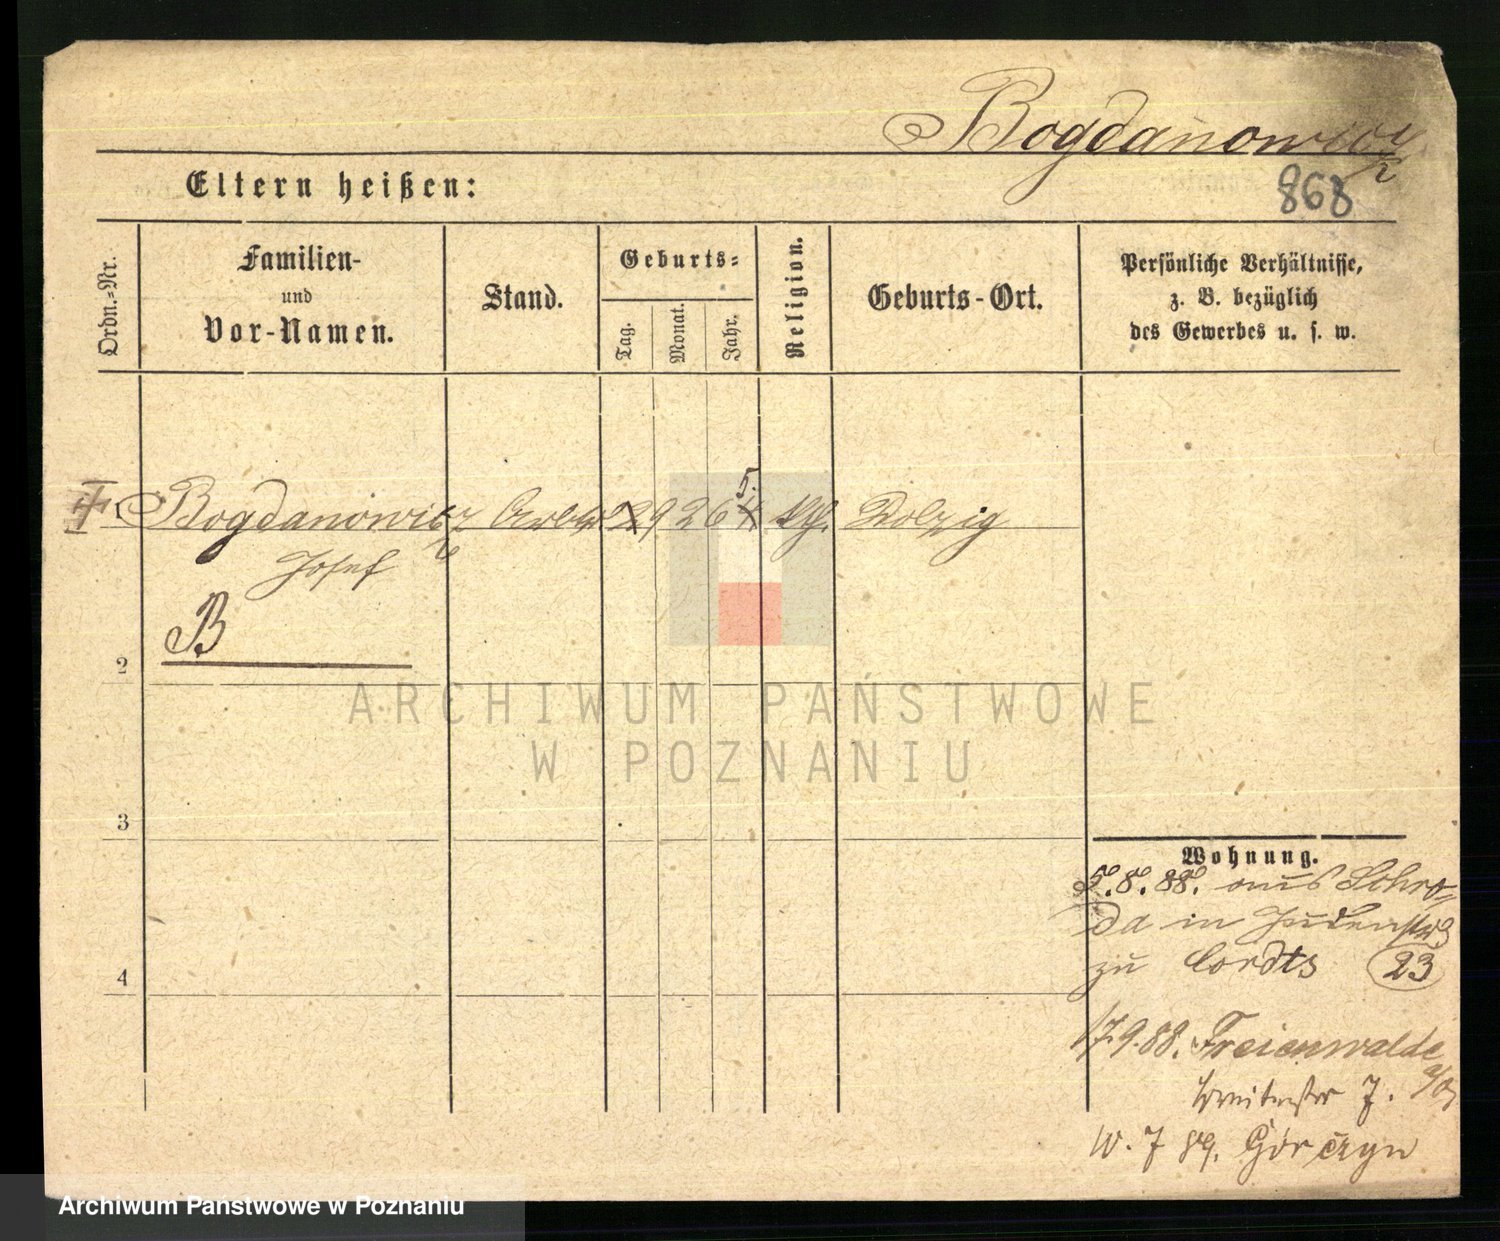 Bogdanowicz
868
Eltern heißen:
Ordn.=Nr.
Familien-
und
Vor-Namen.
Stand.
Geburts=
Tag.
Monat.
Jahr.
Religion.
Geburts-Ort.
Persönliche Verhältnisse,
z. B. bezüglich
des Gewerbes u. s. w.
Bogdanowicz Arbtr 29 2 65. kth. Dolzig
Josef
B
2
3
4
Wohnung.
5.8.88. aus Schro=
da in Judenstr
zu Cordts 23
17.9.88. Freienwalde a/O
7.
10.7 89. Górczyn
ARCHIWUM PAŃSTWOWE
W POZNANIU
Archiwum Państwowe w Poznaniu